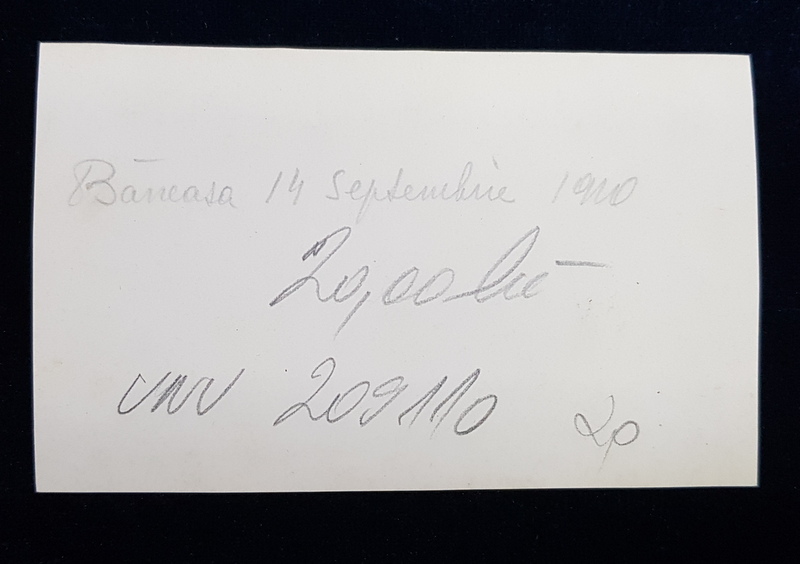 Băneasa 14 Septembrie 1910
20,00 lei –
VNV 209110 20